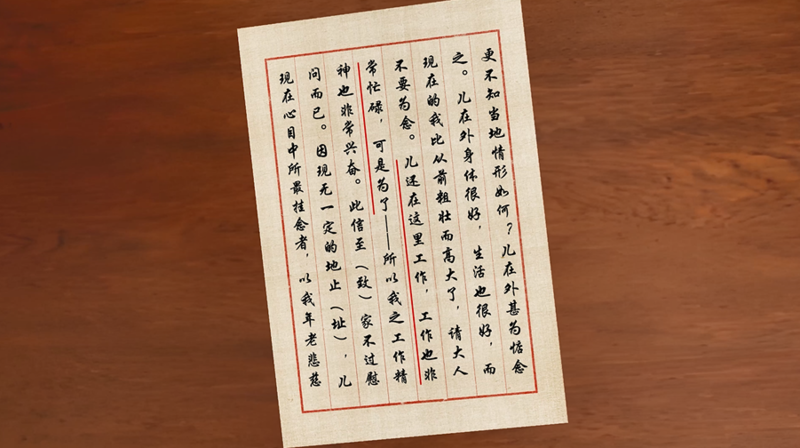 更不知当地情形如何？儿在外甚为惦念
之。儿在外身体很好，生活也很好，而
现在的我比从前粗壮而高大了，请大人
不要为念。儿还在这里工作，工作也非
常忙碌，可是为了——所以我之工作精
神也非常兴奋。此信至（致）家不过慰
问而已。因现无一定的地止（址），儿
现在心目中所最挂念者，以我年老悲慈